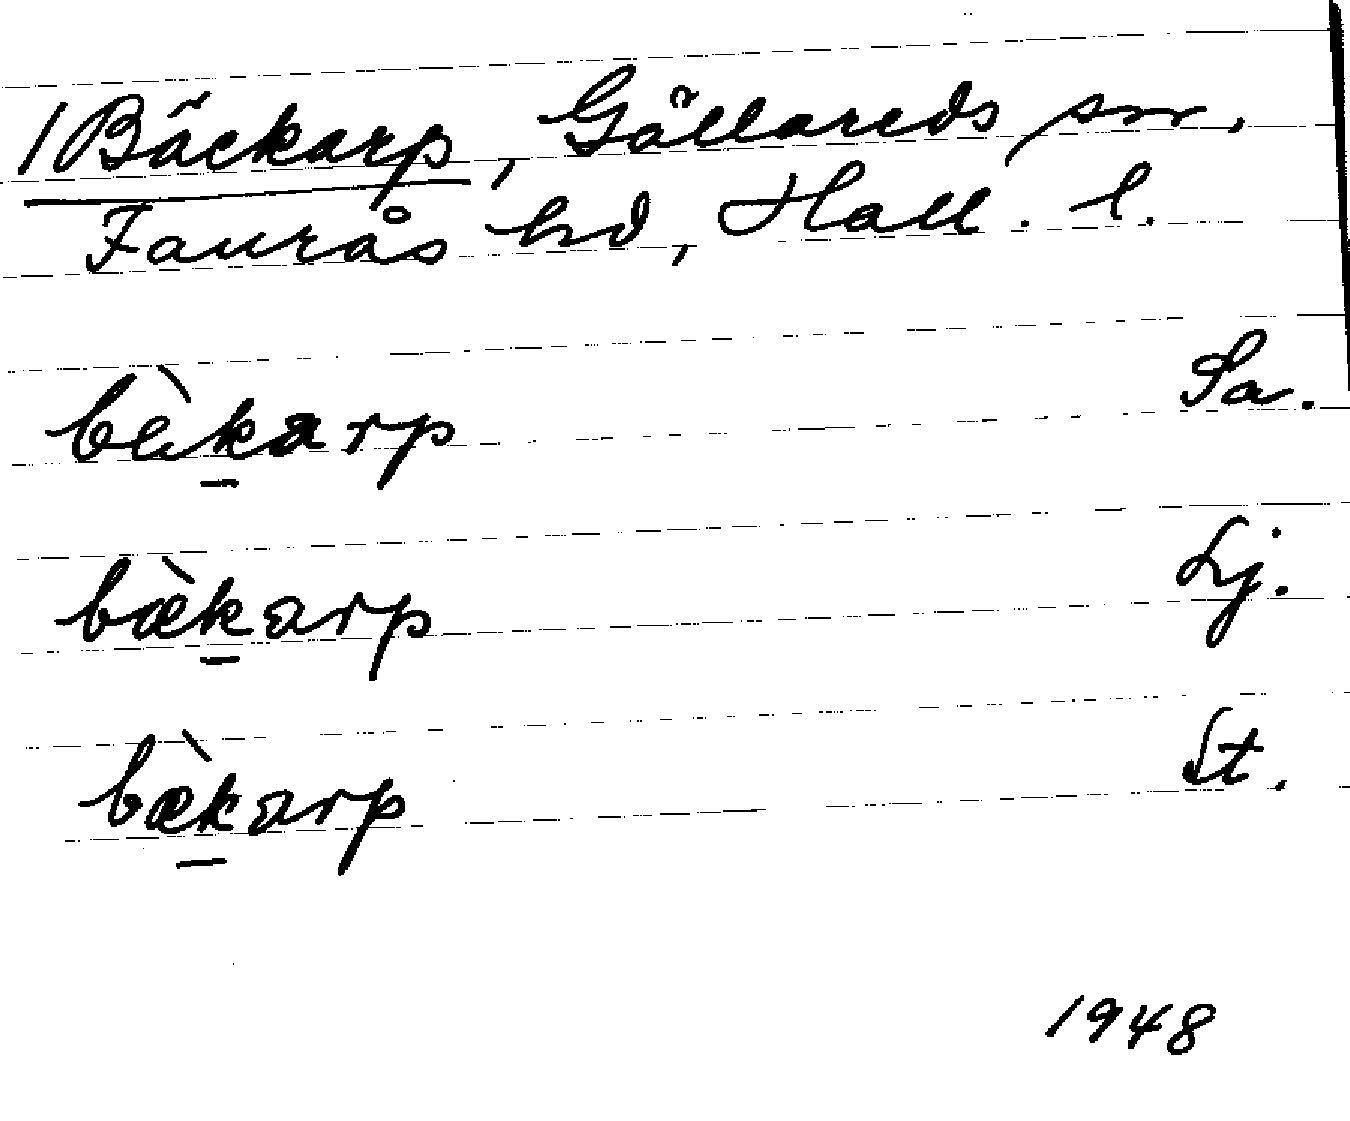 1 Bäckarp, Gällareds sn,
Faurås hd, Hall. l.
bæ̀k̲arp Sa.
bæ̀k̲arp Lj.
bæ̀k̲arp St.
1948